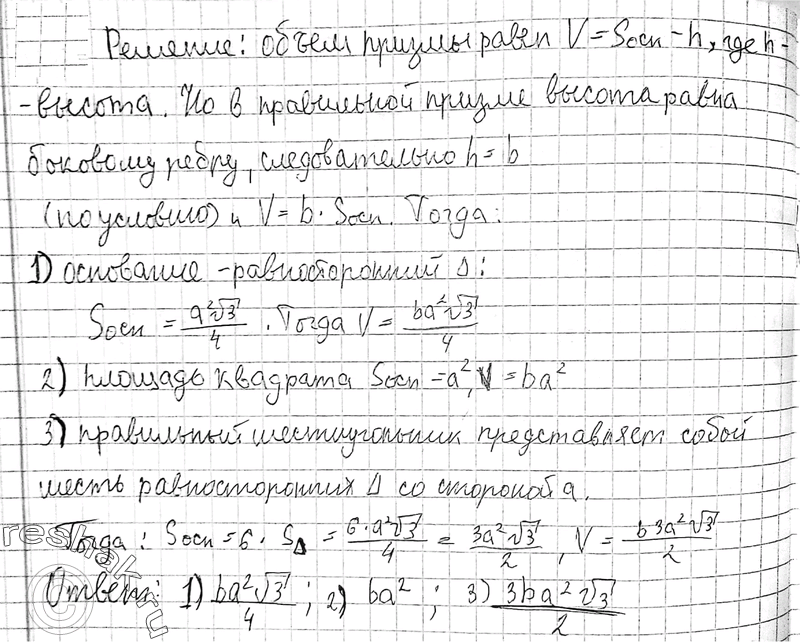 Решение: объем призмы равен V = Sосн - h, где h -
- высота. Но в правильной призме высота равна
боковому ребру, следовательно h = b
(по условию) и V = b · Sосн. Тогда:
1) основание - равносторонний Δ:
Sосн = a²√3/4 . Тогда V = ba²√3/4
2) площадь квадрата Sосн = a², V = ba²
3) правильный шестиугольник представляет собой
шесть равносторонних Δ со стороной a.
Тогда: Sосн = 6 · SΔ = 6·a²√3/4 = 3a²√3/2, V = b3a²√3/2
Ответ: 1) ba²√3/4; 2) ba²; 3) 3ba²√3/2
reshak.ru